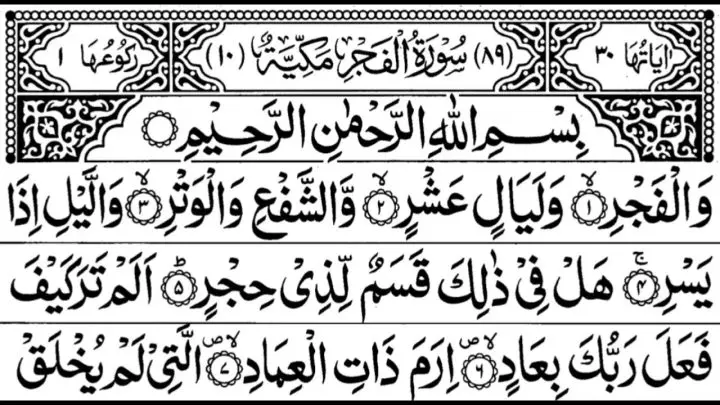 اٰيَاتُهَا ٣٠ (٨٩) سُوْرَةُ الْفَجْرِ مَكِّيَّةٌ (١٠) رُكُوْعُهَا ١
بِسْمِ اللّٰهِ الرَّحْمٰنِ الرَّحِيْمِ
وَالْفَجْرِ ۙ ١ وَلَيَالٍ عَشْرٍ ۙ ٢ وَّالشَّفْعِ وَالْوَتْرِ ۙ ٣ وَالَّيْلِ اِذَا
يَسْرِ ۚ ٤ هَلْ فِيْ ذٰلِكَ قَسَمٌ لِّذِيْ حِجْرٍ ؕ ٥ اَلَمْ تَرَ كَيْفَ
فَعَلَ رَبُّكَ بِعَادٍ ۙ ۪ ٦ اِرَمَ ذَاتِ الْعِمَادِ ۙ ۪ ٧ الَّتِيْ لَمْ يُخْلَقْ